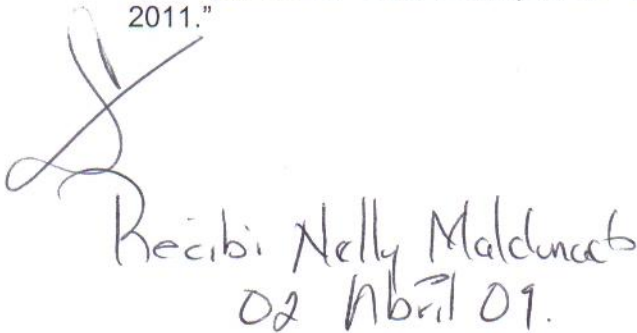 2011.”
Recibi Nelly Maldonado
02 Abril 09.